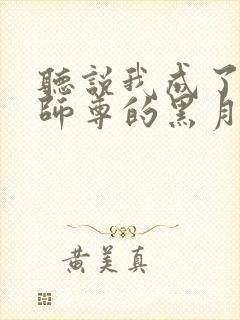 聽說我成了
師尊的黑月
黃美真